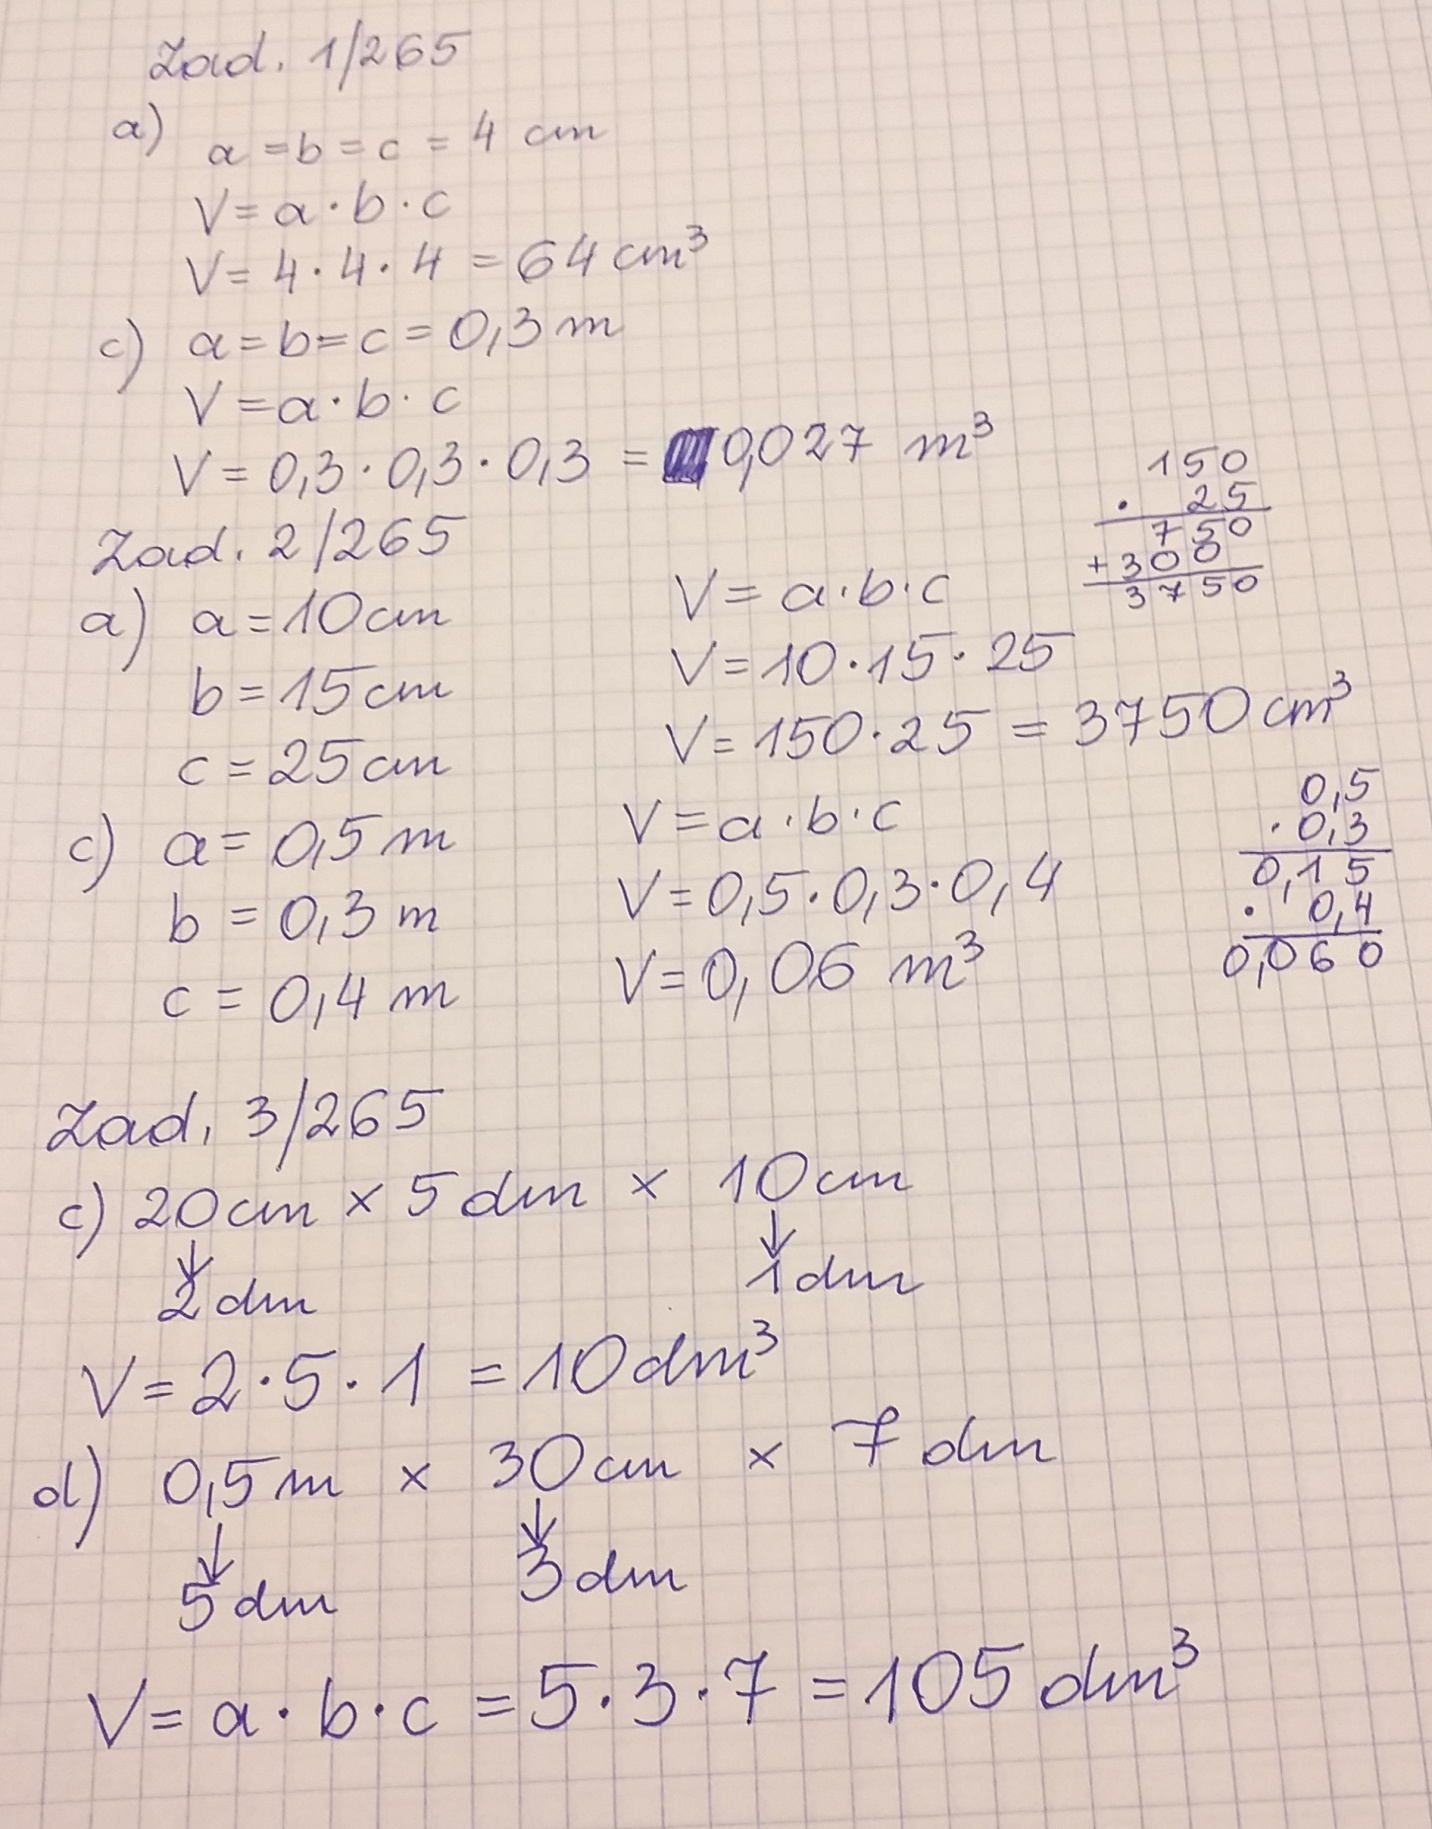 Zad. 1/265
a) a = b = c = 4 cm
V = a · b · c
V = 4 · 4 · 4 = 64 cm³
c) a = b = c = 0,3 m
V = a · b · c
V = 0,3 · 0,3 · 0,3 = 0,027 m³
Zad. 2/265
a) a = 10 cm
b = 15 cm
c = 25 cm
V = a · b · c
V = 10 · 15 · 25
V = 150 · 25 = 3750 cm³
150
· 25
750
+ 300
3750
c) a = 0,5 m
b = 0,3 m
c = 0,4 m
V = a · b · c
V = 0,5 · 0,3 · 0,4
V = 0,06 m³
0,5
· 0,3
0,15
· 0,4
0,060
Zad. 3/265
c) 20 cm × 5 dm × 10 cm
↓ ↓
2 dm 1 dm
V = 2 · 5 · 1 = 10 dm³
d) 0,5 m × 30 cm × 7 dm
↓ ↓
5 dm 3 dm
V = a · b · c = 5 · 3 · 7 = 105 dm³